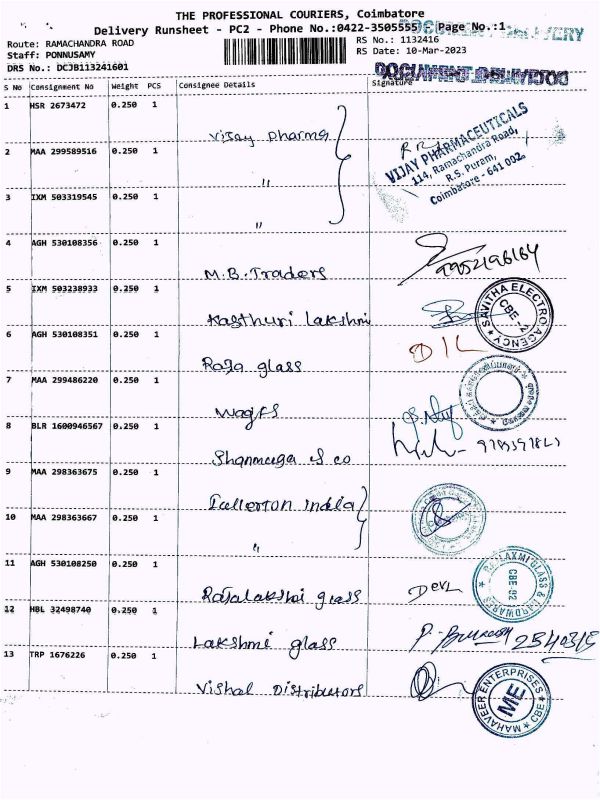 THE PROFESSIONAL COURIERS, Coimbatore
DOCUMENT DELIVERY
Delivery Runsheet - PC2 - Phone No.:0422-3505555 - Page No.:1
Route: RAMACHANDRA ROAD
RS No.: 1132416
Staff: PONNUSAMY
RS Date: 10-Mar-2023
DRS No.: DCJB113241601
DOCUMENT
S No Consignment No Weight PCS Consignee Details Signature
1 HSR 2673472 0.250 1
Vijay pharma
VIJAY PHARMACEUTICALS
114, Ramachandra Road,
R.S. Puram,
Coimbatore - 641 002.
2 MAA 299589516 0.250 1
"
3 IXM 503319545 0.250 1
"
4 AGH 530108356 0.250 1
M.B. Traders
9952196164
5 IXM 503238933 0.250 1
Kasthuri lakshmi
SAVITHA ELECTRO AGENCY
CBE-2
6 AGH 530108351 0.250 1
Raja glass
7 MAA 299486220 0.250 1
8 BLR 1600946567 0.250 1
Shanmuga & co
9 MAA 298363675 0.250 1
Fullerton India
10 MAA 298363667 0.250 1
"
11 AGH 530108250 0.250 1
Rajalakshmi glass
Devi
RAJALAXMI GLASS & HARDWARES
CBE-02
12 HBL 32498740 0.250 1
Lakshmi glass
13 TRP 1676226 0.250 1
Vishal Distributors
MAHAVEER ENTERPRISES
ME
CBE